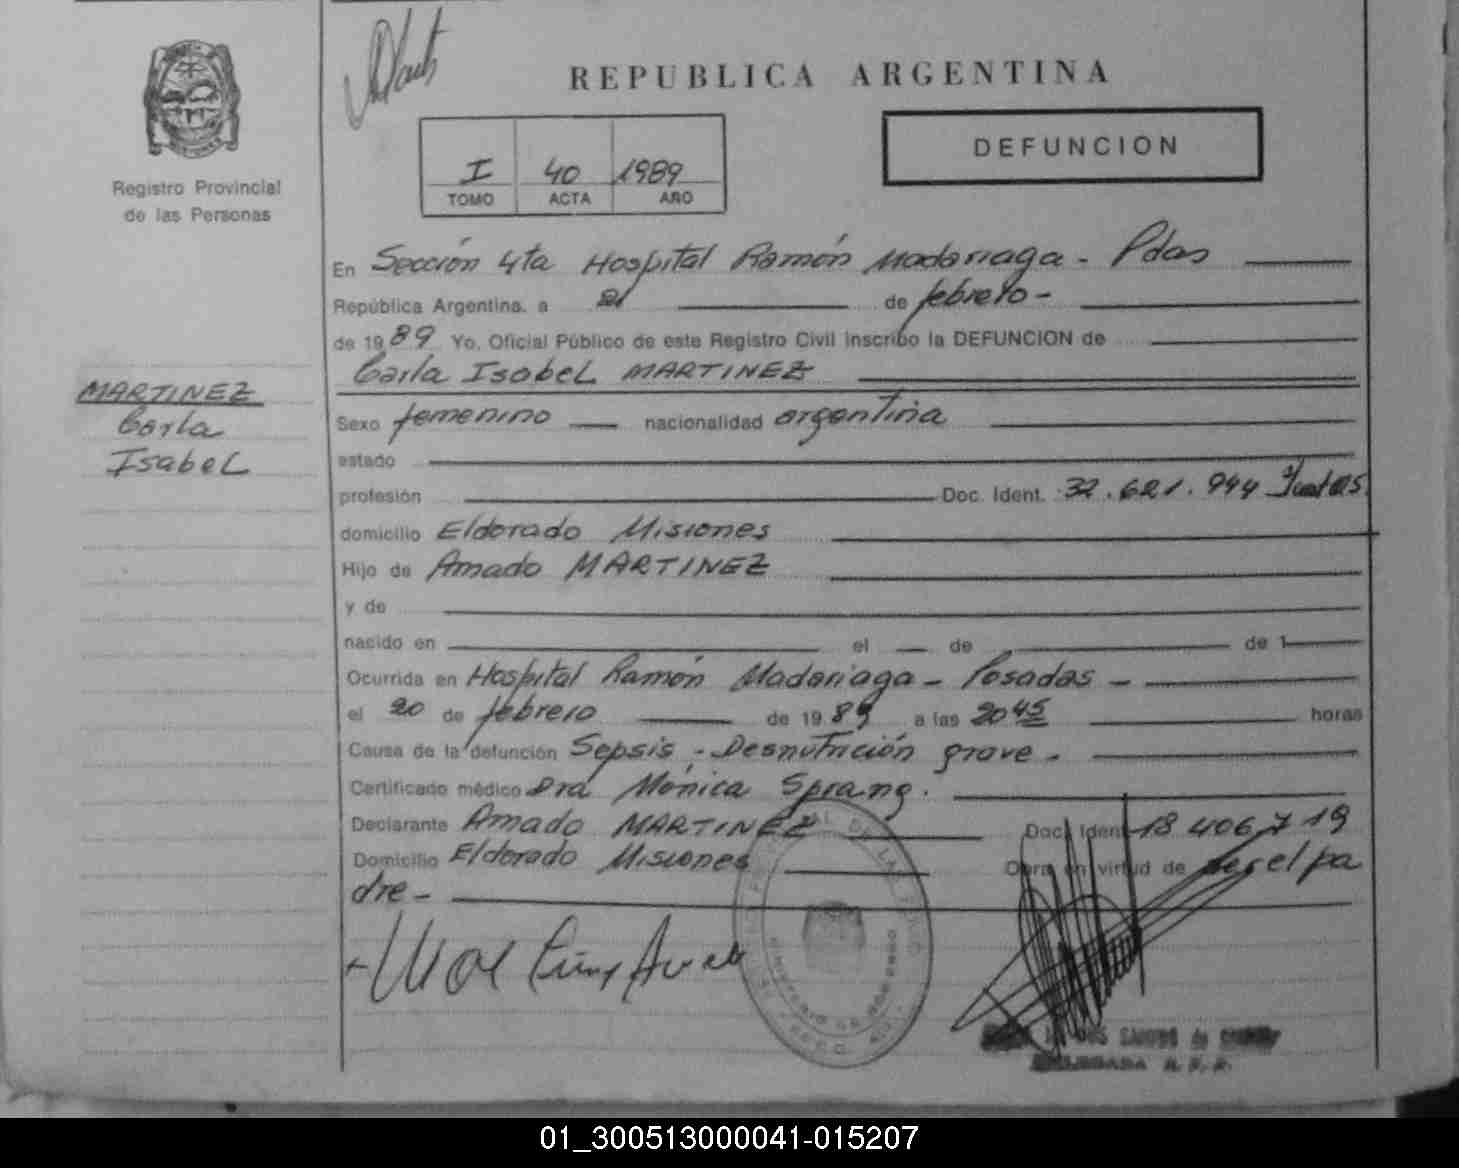 REPUBLICA ARGENTINA
DEFUNCION
I 40 1989
TOMO ACTA AÑO
Registro Provincial
de las Personas
MARTINEZ
Carla
Isabel
En Sección 4ta Hospital Ramón Madariaga - Pdas
República Argentina, a 21 de febrero -
de 1989 Yo, Oficial Público de este Registro Civil inscribo la DEFUNCION de
Carla Isabel MARTINEZ
Sexo femenino nacionalidad argentina
estado
profesión Doc. Ident. 32.621.944
domicilio Eldorado Misiones
Hijo de Amado MARTINEZ
y de
nacido en el de de 1
Ocurrida en Hospital Ramón Madariaga - Posadas -
el 20 de febrero de 1989 a las 20 45 horas
Causa de la defunción Sepsis - Desnutrición grave -
Certificado médico Dra Mónica Sprang.
Declarante Amado MARTINEZ Doc. Ident 18 406 719
Domicilio Eldorado Misiones Obra en virtud de ser el pa
dre -
01_300513000041-015207